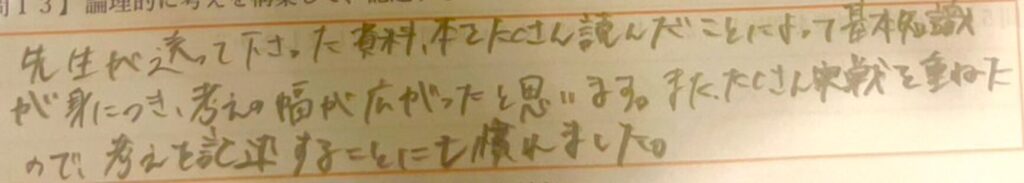 問13】論理的に考えを構築して、記述
先生が送って下さった資料、本をたくさん読んだことによって基本知識
が身につき、考えの幅が広がったと思います。また、たくさん実戦を重ねた
ので、考えを記述することにも慣れました。